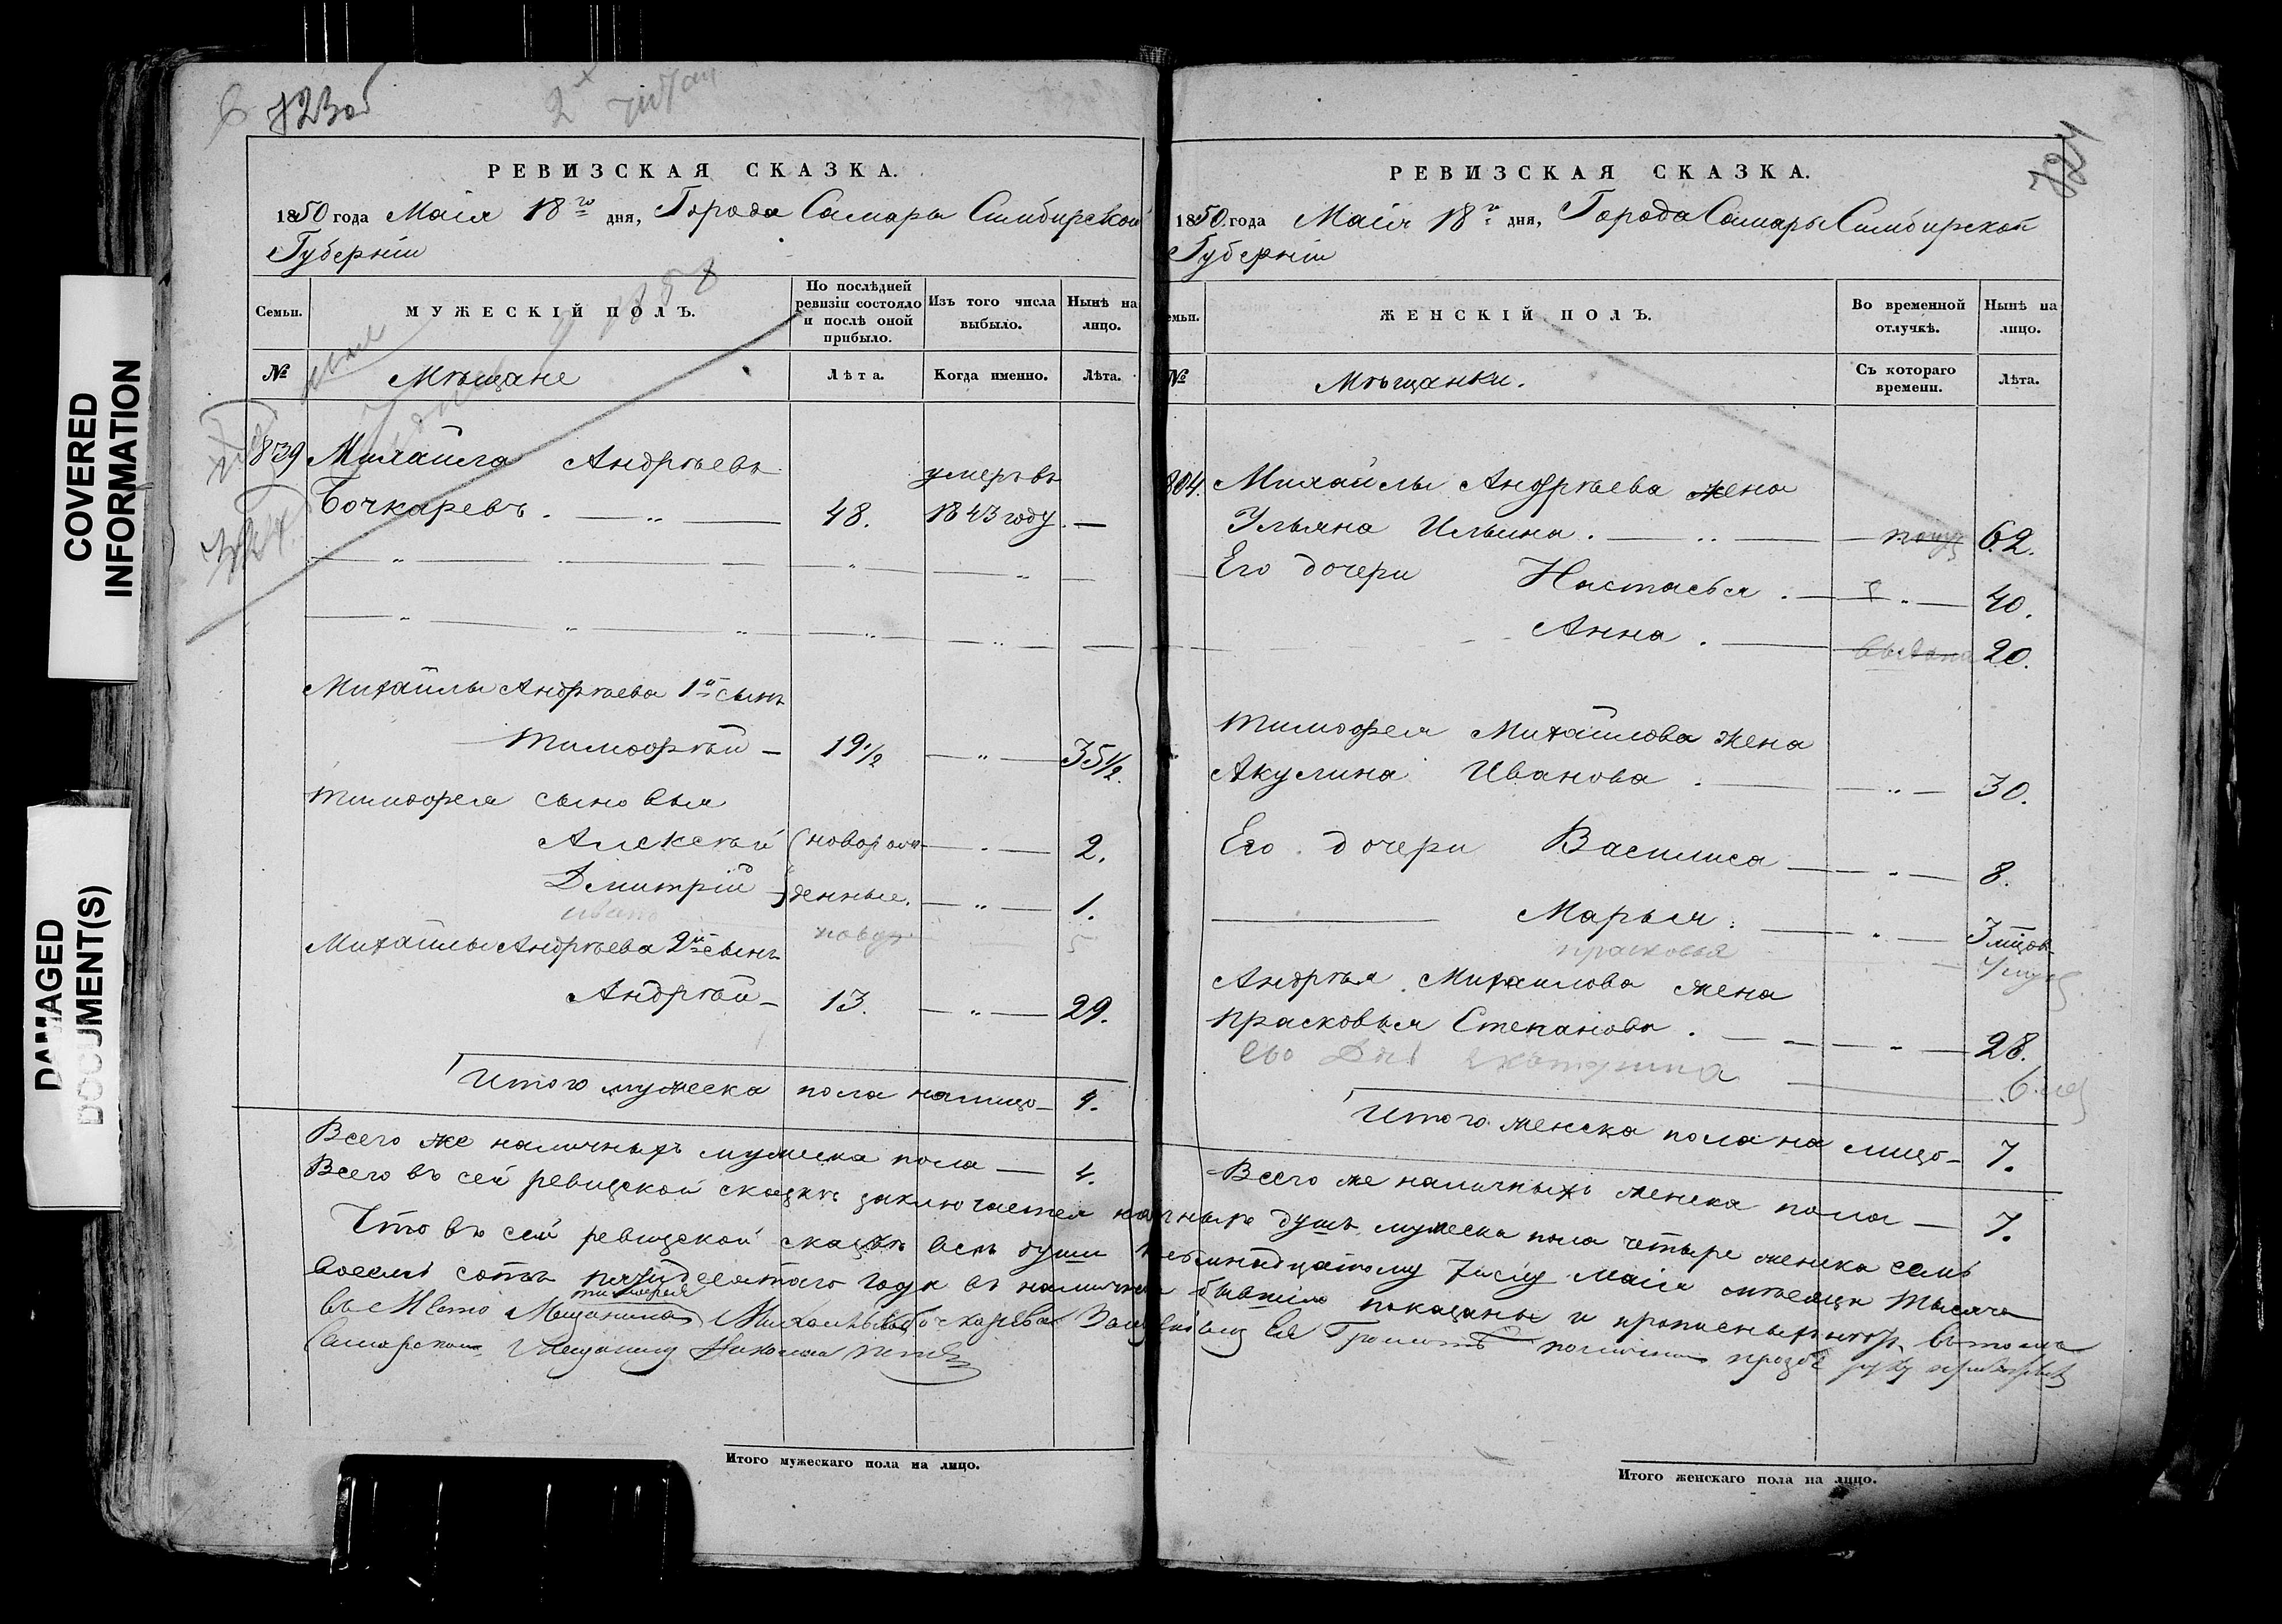 COVERED
INFORMATION
DAMAGED
DOCUMENT(S)
823об
РЕВИЗСКАЯ СКАЗКА.
1850 года Маія 18го дня, Города Самары Симбирской
Губерніи
Семьи.
МУЖЕСКІЙ ПОЛЪ.
По послѣдней ревизіи состояло и послѣ оной прибыло.
Изъ того числа выбыло.
Нынѣ на лицо.
№
Мѣщане
Лѣта.
Когда именно.
Лѣта.
1858
839 Михайла Андрѣевъ умеръ въ
Бочкаревъ. — „ — 48. 1843 году. —
Михайлы Андрѣева 1й сынъ
Тимофѣй — 19½ — „ — 35½.
Тимофея сыновья
Алексѣй (новорож- — „ — 2.
Дмитрій денные. — „ — 1.
Иванъ новор 5
Михайлы Андрѣева 2й сынъ
Андрѣй — 13. — „ — 29.
Итого мужеска пола налицо — 4.
Всего же наличныхъ мужеска пола — 4.
Итого мужескаго пола на лицо.
824
РЕВИЗСКАЯ СКАЗКА.
1850 года Маія 18го дня, Города Самары Симбирской
Губерніи
емьи.
ЖЕНСКІЙ ПОЛЪ.
Во временной отлучкѣ.
Нынѣ на лицо.
№
Мѣщанки.
Съ котораго времени.
Лѣта.
804. Михайлы Андрѣева жена
Ульяна Ильина. — „ — 62.
Его дочери Настасья. — „ — 40.
Анна. — 20.
Тимофея Михайлова жена
Акулина Иванова. — „ — 30.
Его дочери Василиса — „ — 8.
Марья. — „ — 3 мцов
Прасковья
Андрѣя Михайлова жена
Прасковья Степанова. — „ — 28.
Его Екатерина 6
Итого женска пола на лицо — 7.
Всего же наличныхъ женска пола — 7.
Всего въ сей ревизской сказкѣ заключается наличныхъ душъ мужеска пола четыре женска семь
Что въ сей ревизской сказкѣ всѣ души къ осьмнадцатому числу Маія мѣсяца тысяча
восемь сотъ пятидесятаго года въ наличности бывшіе показаны и прописныхъ нѣтъ, въ томъ
Тимофея
въ Мѣсто Мещанина Михайлова Бочкарева
Самарскои Мещанинъ Николай
Итого женскаго пола на лицо.